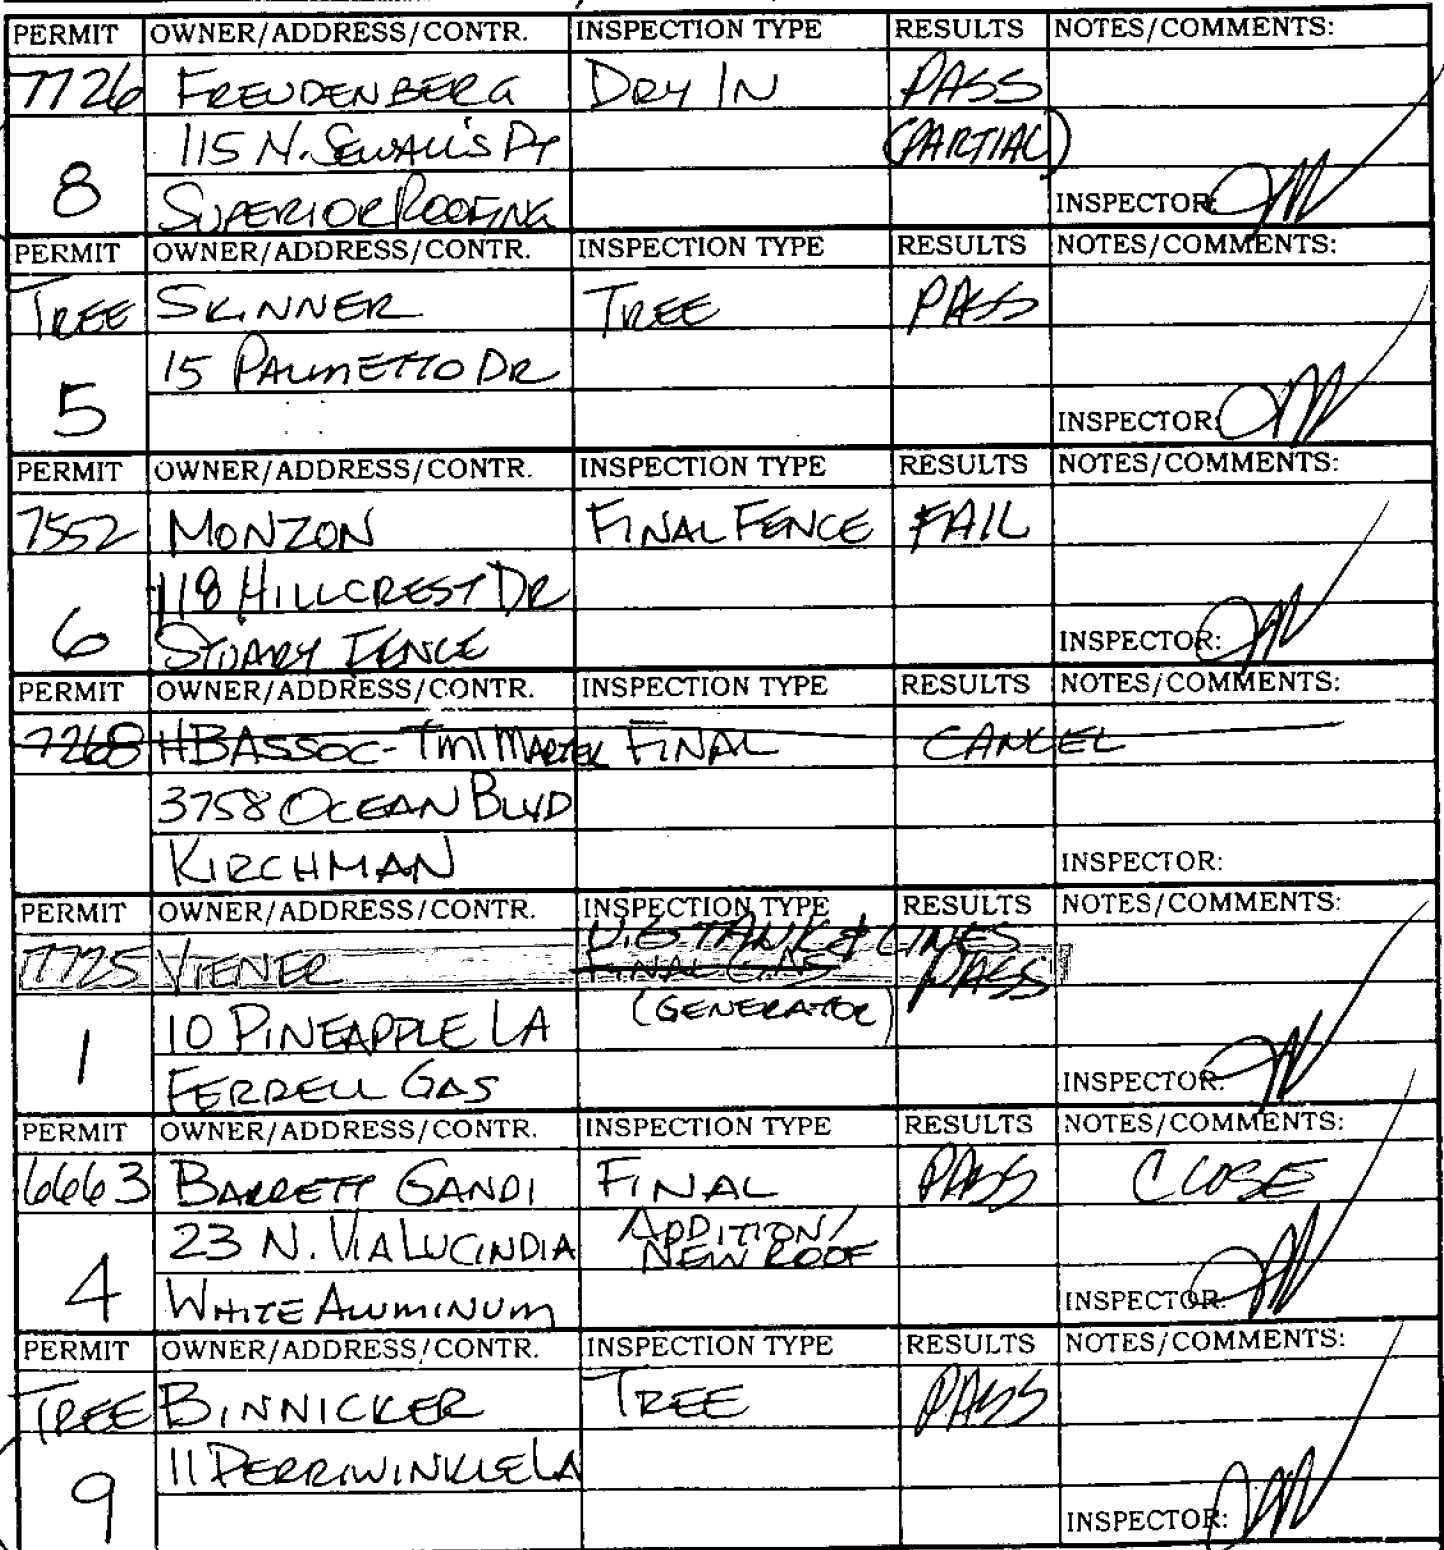 PERMIT OWNER/ADDRESS/CONTR. INSPECTION TYPE RESULTS NOTES/COMMENTS:
7726 FREUDENBERG DRY IN PASS
115 N. SEWALL'S PT (PARTIAL)
8 SUPERIOR ROOFING INSPECTOR:
PERMIT OWNER/ADDRESS/CONTR. INSPECTION TYPE RESULTS NOTES/COMMENTS:
TREE SKINNER TREE PASS
15 PALMETTO DR
5 INSPECTOR:
PERMIT OWNER/ADDRESS/CONTR. INSPECTION TYPE RESULTS NOTES/COMMENTS:
7552 MONZON FINAL FENCE FAIL
118 HILLCREST DR
6 STUART FENCE INSPECTOR:
PERMIT OWNER/ADDRESS/CONTR. INSPECTION TYPE RESULTS NOTES/COMMENTS:
7268 HB ASSOC- FINAL CANCEL
3758 OCEAN BLVD
KIRCHMAN INSPECTOR:
PERMIT OWNER/ADDRESS/CONTR. INSPECTION TYPE RESULTS NOTES/COMMENTS:
U.G TANK & LINES
7725 VIENER FINAL GAS PASS
10 PINEAPPLE LA (GENERATOR)
1 FERRELL GAS INSPECTOR:
PERMIT OWNER/ADDRESS/CONTR. INSPECTION TYPE RESULTS NOTES/COMMENTS:
6663 BARRETT GANDI FINAL PASS CLOSE
23 N. VIA LUCINDIA ADDITION/
NEW ROOF
4 WHITE ALUMINUM INSPECTOR:
PERMIT OWNER/ADDRESS/CONTR. INSPECTION TYPE RESULTS NOTES/COMMENTS:
TREE BINNICKER TREE PASS
11 PERRIWINKLE LA
9 INSPECTOR: